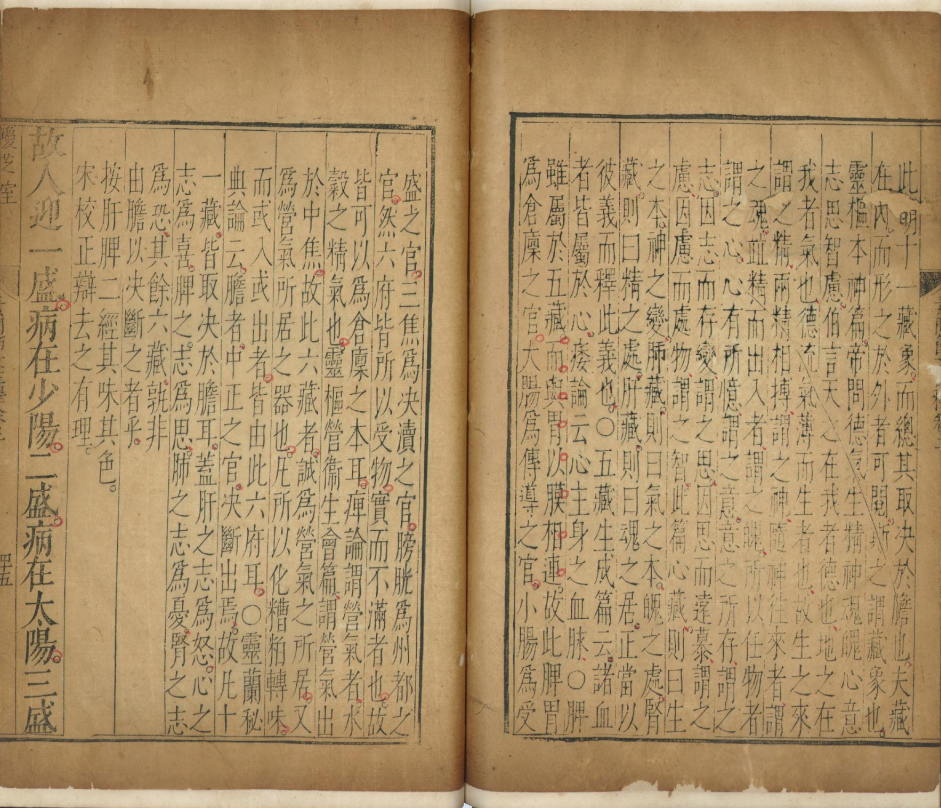 此明十一藏象而總其取决於膽也夫藏
在內而形之於外者可閱斯之謂藏象也
靈樞本神篇帝問德氣生精神魂魄心意
志思智慮伯言天之在我者德也地之在
我者氣也德流氣薄而生者也故生之來
謂之精兩精相摶謂之神隨神往來者謂
之魂並精而出入者謂之魄所以任物者
謂之心心有所憶謂之意意之所存謂之
志因志而存變謂之思因思而遠慕謂之
慮因慮而處物謂之智此篇心藏則曰生
之本神之變肺藏則曰氣之本魄之處腎
藏則曰精之處肝藏則曰魂之居正當以
彼義而釋此義也〇五藏生成篇云諸血
者皆屬於心痿論云心主身之血脉〇脾
雖屬於五藏而與胃以膜相連故此脾胃
爲倉廩之官大腸爲傳導之官小腸爲受
盛之官三焦爲决瀆之官膀胱爲州都之
官然六府皆所以受物實而不滿者也故
皆可以爲倉廩之本耳痺論謂營氣者水
穀之精氣也靈樞營衞生會篇謂營氣出
於中焦故此六藏者誠爲營氣之所居又
爲營氣所居之器也凡所以化糟粕轉味
而或入或出者皆由此六府耳〇靈蘭秘
典論云膽者中正之官决斷出焉故凡十
一藏皆取决於膽耳蓋肝之志爲怒心之
志爲喜脾之志爲思肺之志爲憂腎之志
爲恐其餘六藏孰非
由膽以决斷之者乎
按肝脾二經其味其色
宋校正辯去之有理
故人迎一盛病在少陽二盛病在太陽三盛
四五